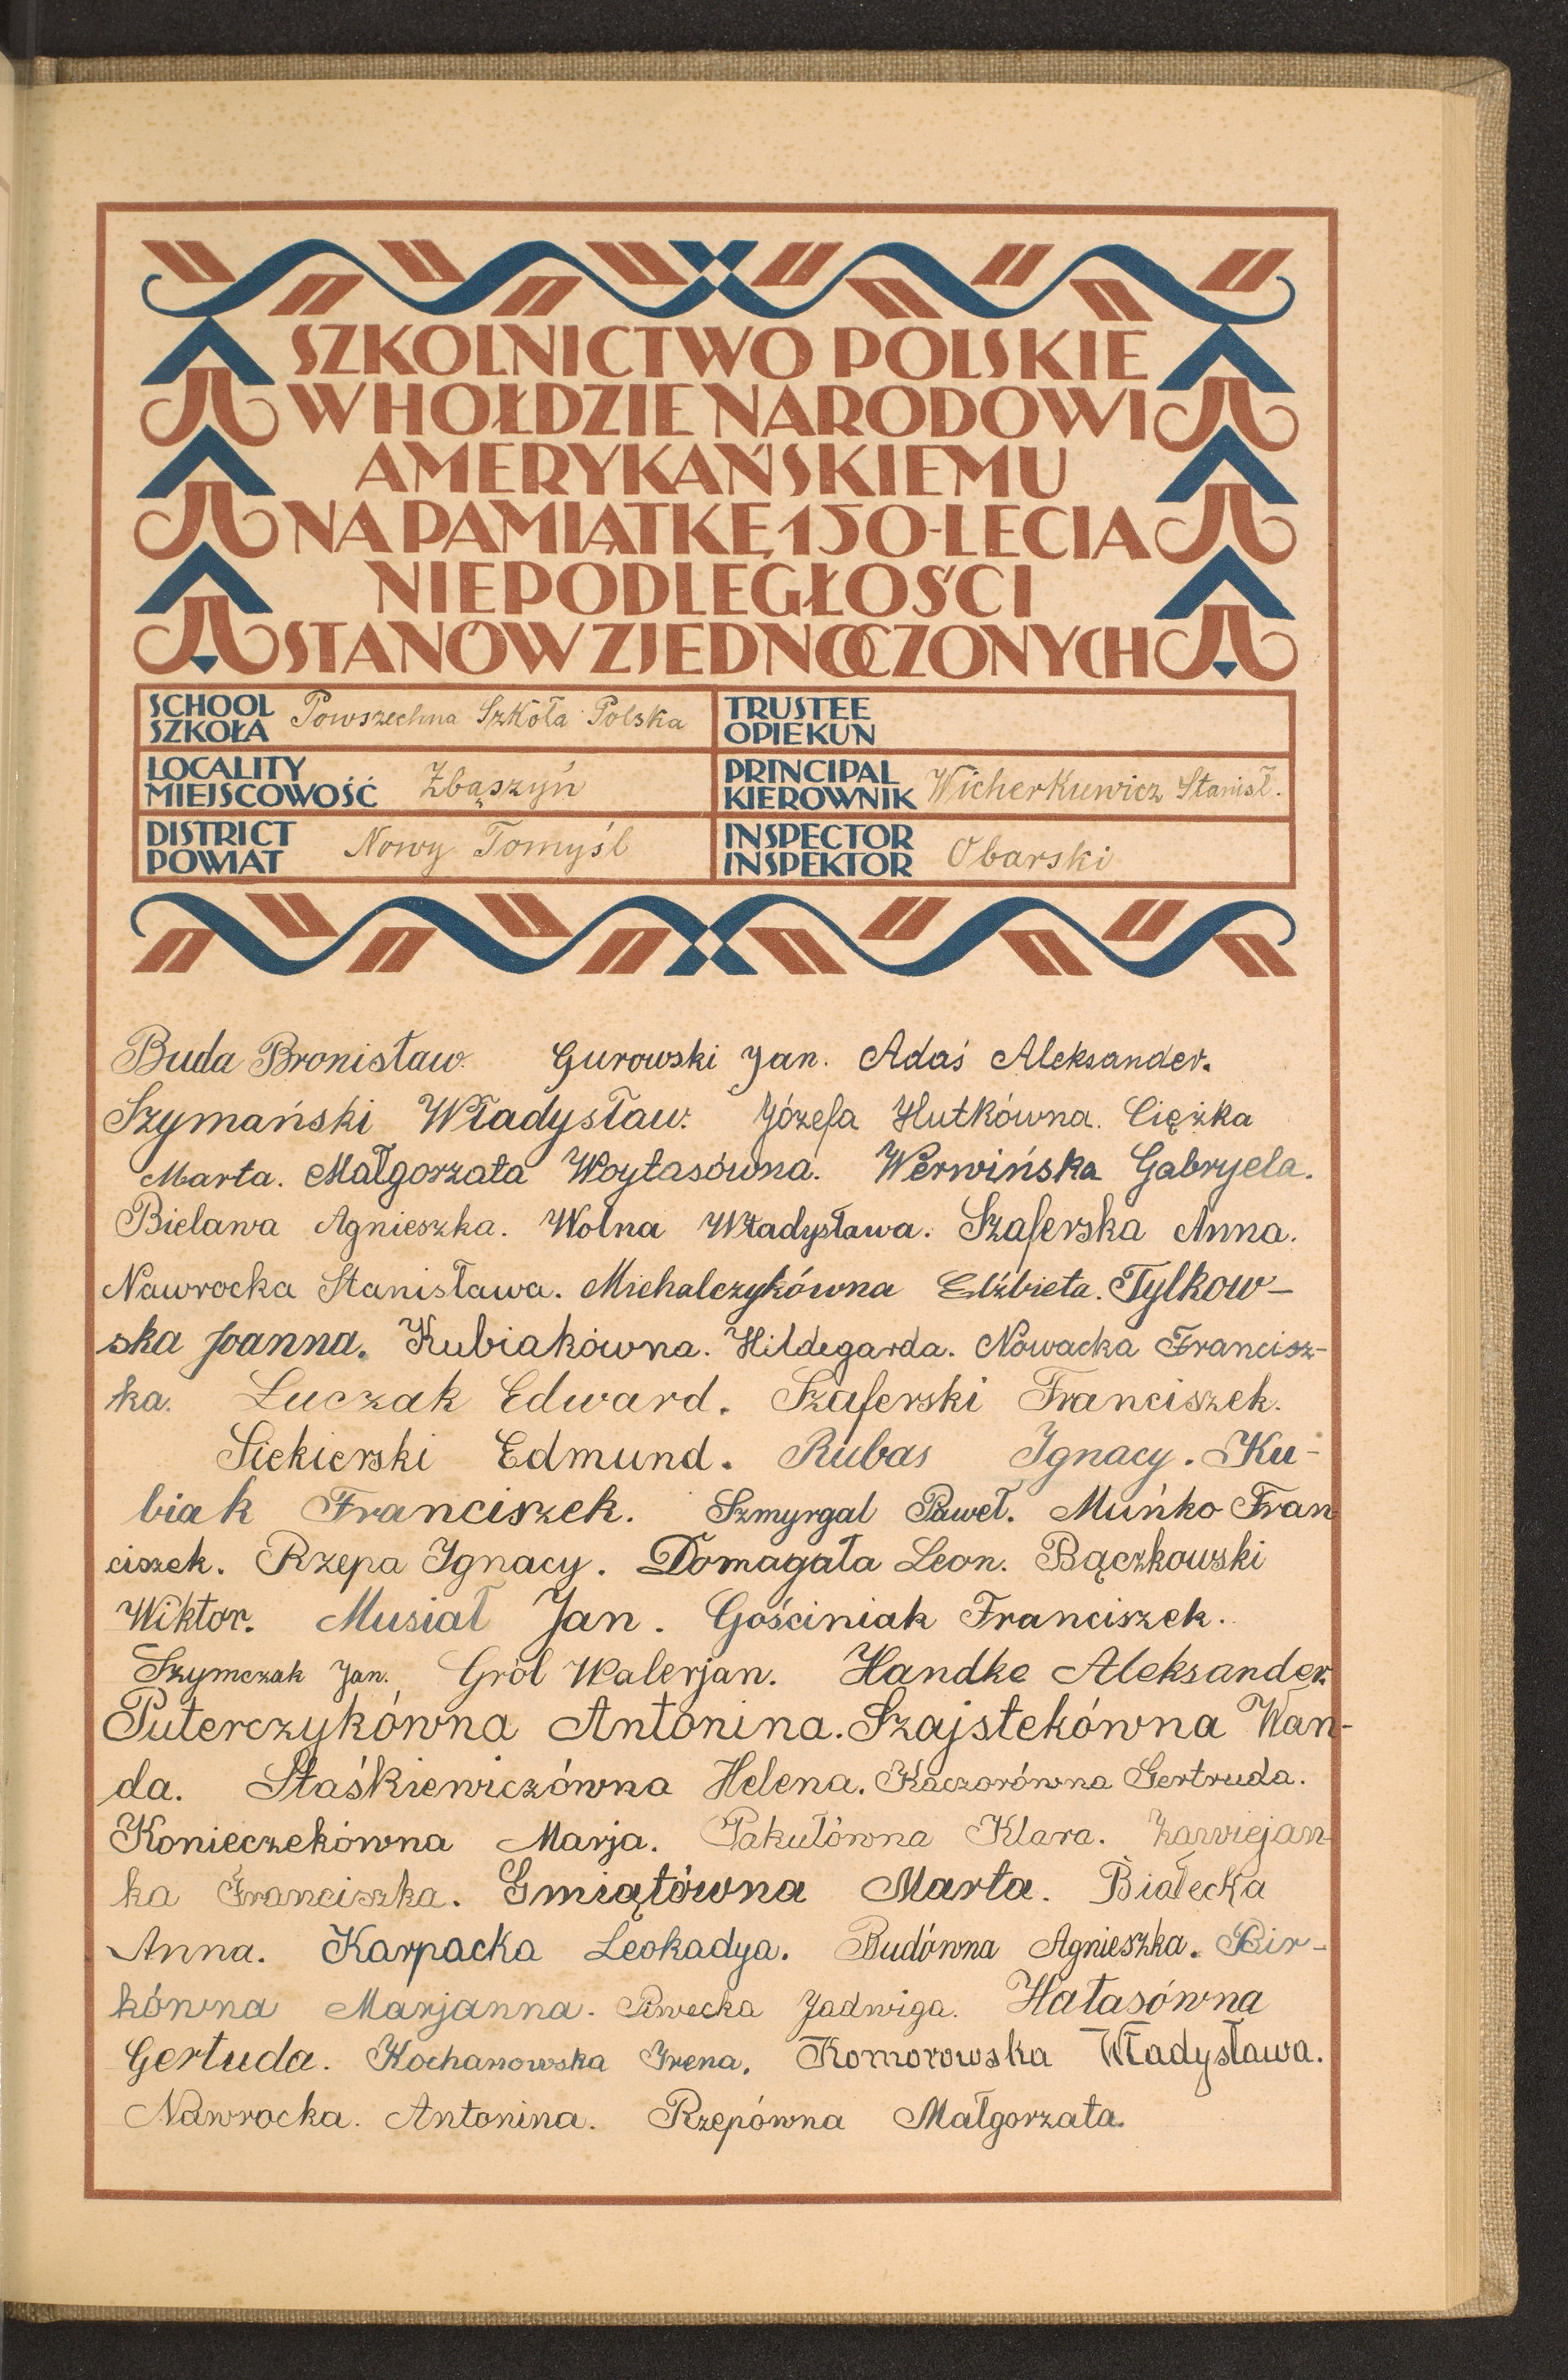 SZKOLNICTWO POLSKIE
W HOŁDZIE NARODOWI
AMERYKAŃSKIEMU
NA PAMIĄTKĘ 150-LECIA
NIEPODLEGŁOŚCI
STANÓW ZJEDNOCZONYCH
SCHOOL
SZKOŁA Powszechna Szkoła Polska
TRUSTEE
OPIEKUN
LOCALITY
MIEJSCOWOŚĆ Zbąszyń
PRINCIPAL
KIEROWNIK Wicherkiewicz Stanisł.
DISTRICT
POWIAT Nowy Tomyśl
INSPECTOR
INSPEKTOR Obarski
Buda Bronisław. Gurowski Jan. Adaś Aleksander.
Szymański Władysław. Józefa Hutkówna. Ciężka
Marta. Małgorzata Woytasówna. Werwińska Gabryela.
Bielawa Agnieszka. Wolna Władysława. Szaferska Anna.
Nawrocka Stanisława. Michalczykówna Elżbieta. Tylkow-
ska Joanna. Kubiakówna. Hildegarda. Nowacka Francisz-
ka. Luczak Edward. Szaferski Franciszek.
Siekierski Edmund. Rubas Ignacy. Ku-
biak Franciszek. Szmyrgal Paweł. Muńko Fran
ciszek. Rzepa Ignacy. Domagała Leon. Bączkowski
Wiktor. Musiał Jan. Gościniak Franciszek.
Szymczak Jan. Gról Walerjan. Handke Aleksander.
Puterczykówna Antonina. Szajstekówna Wan-
da. Staśkiewiczówna Helena. Kaczorówna Gertruda.
Konieczekówna Marja. Pakułówna Klara. Zawiejan-
ka Franciszka. Gmiątówna Marta. Białecka
Anna. Karpacka Leokadya. Budówna Agnieszka. Bir-
kówna Marjanna. Piwecka Jadwiga. Hałasówna
Gertuda. Kochanowska Irena. Komorowska Władysława.
Nawrocka. Antonina. Rzepówna Małgorzata.